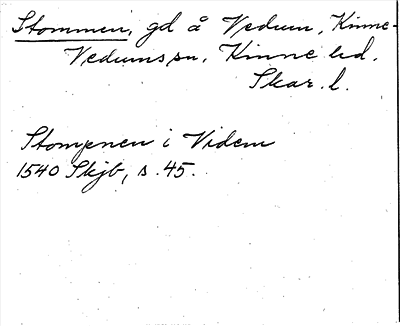 Stommen, gd å Vedum, Kinne-
Vedums sn. Kinne hd.
Skar. l.
Stompnen i Videm
1540 Skjb, s. 45.